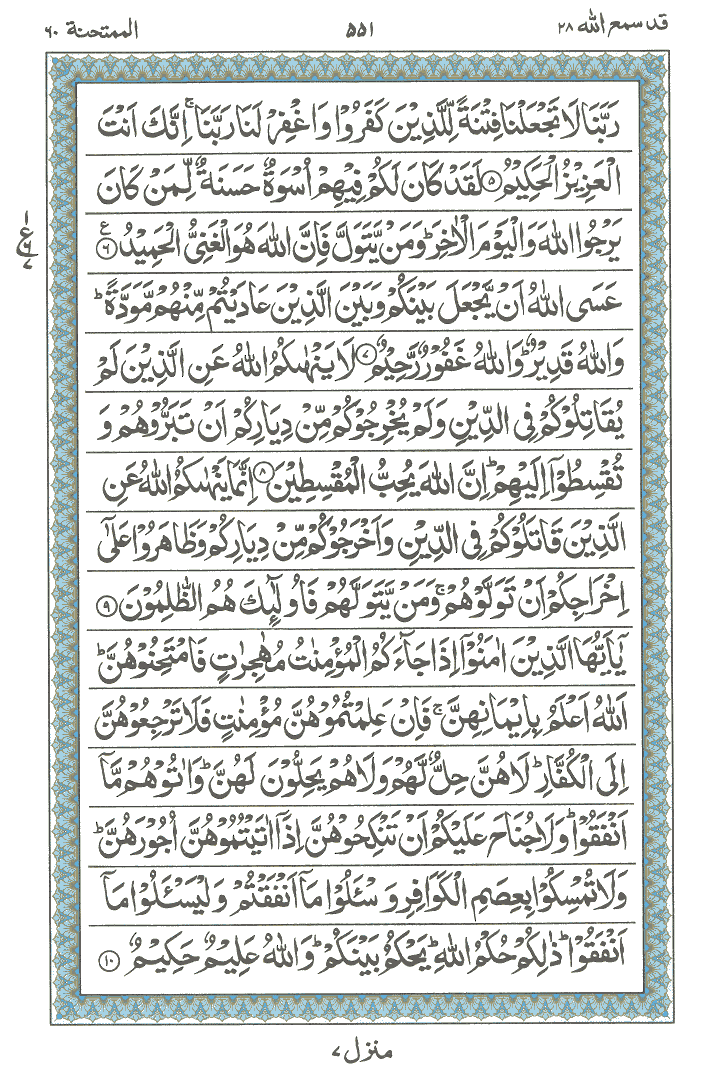 قد سمع الله ٢٨
٥٥١
الممتحنة ٦٠
رَبَّنَا لَا تَجْعَلْنَا فِتْنَةً لِّلَّذِيْنَ كَفَرُوْا وَاغْفِرْ لَنَا رَبَّنَا ۚ اِنَّكَ اَنْتَ
الْعَزِيْزُ الْحَكِيْمُ ۝۵ لَقَدْ كَانَ لَكُمْ فِيْهِمْ اُسْوَةٌ حَسَنَةٌ لِّمَنْ كَانَ
يَرْجُوا اللّٰهَ وَالْيَوْمَ الْاٰخِرَ ؕ وَمَنْ يَّتَوَلَّ فَاِنَّ اللّٰهَ هُوَ الْغَنِيُّ الْحَمِيْدُ ۝۶ ع
عَسَى اللّٰهُ اَنْ يَّجْعَلَ بَيْنَكُمْ وَبَيْنَ الَّذِيْنَ عَادَيْتُمْ مِّنْهُمْ مَّوَدَّةً ؕ
وَاللّٰهُ قَدِيْرٌ ؕ وَاللّٰهُ غَفُوْرٌ رَّحِيْمٌ ۝۷ لَا يَنْهٰىكُمُ اللّٰهُ عَنِ الَّذِيْنَ لَمْ
يُقَاتِلُوْكُمْ فِى الدِّيْنِ وَلَمْ يُخْرِجُوْكُمْ مِّنْ دِيَارِكُمْ اَنْ تَبَرُّوْهُمْ وَ
تُقْسِطُوْۤا اِلَيْهِمْ ؕ اِنَّ اللّٰهَ يُحِبُّ الْمُقْسِطِيْنَ ۝۸ اِنَّمَا يَنْهٰىكُمُ اللّٰهُ عَنِ
الَّذِيْنَ قَاتَلُوْكُمْ فِى الدِّيْنِ وَاَخْرَجُوْكُمْ مِّنْ دِيَارِكُمْ وَظَاهَرُوْا عَلٰۤى
اِخْرَاجِكُمْ اَنْ تَوَلَّوْهُمْ ۚ وَمَنْ يَّتَوَلَّهُمْ فَاُولٰٓئِكَ هُمُ الظّٰلِمُوْنَ ۝۹
يٰۤاَيُّهَا الَّذِيْنَ اٰمَنُوْۤا اِذَا جَآءَكُمُ الْمُؤْمِنٰتُ مُهٰجِرٰتٍ فَامْتَحِنُوْهُنَّ ؕ
اَللّٰهُ اَعْلَمُ بِاِيْمَانِهِنَّ ۚ فَاِنْ عَلِمْتُمُوْهُنَّ مُؤْمِنٰتٍ فَلَا تَرْجِعُوْهُنَّ
اِلَى الْكُفَّارِ ؕ لَا هُنَّ حِلٌّ لَّهُمْ وَلَا هُمْ يَحِلُّوْنَ لَهُنَّ ؕ وَاٰتُوْهُمْ مَّاۤ
اَنْفَقُوْا ؕ وَلَا جُنَاحَ عَلَيْكُمْ اَنْ تَنْكِحُوْهُنَّ اِذَاۤ اٰتَيْتُمُوْهُنَّ اُجُوْرَهُنَّ ؕ
وَلَا تُمْسِكُوْا بِعِصَمِ الْكَوَافِرِ وَسْـَٔلُوْا مَاۤ اَنْفَقْتُمْ وَلْيَسْـَٔلُوْا مَاۤ
اَنْفَقُوْا ؕ ذٰلِكُمْ حُكْمُ اللّٰهِ ؕ يَحْكُمُ بَيْنَكُمْ ؕ وَاللّٰهُ عَلِيْمٌ حَكِيْمٌ ۝۱۰
۱
ع ۶
۷
منزل ۷